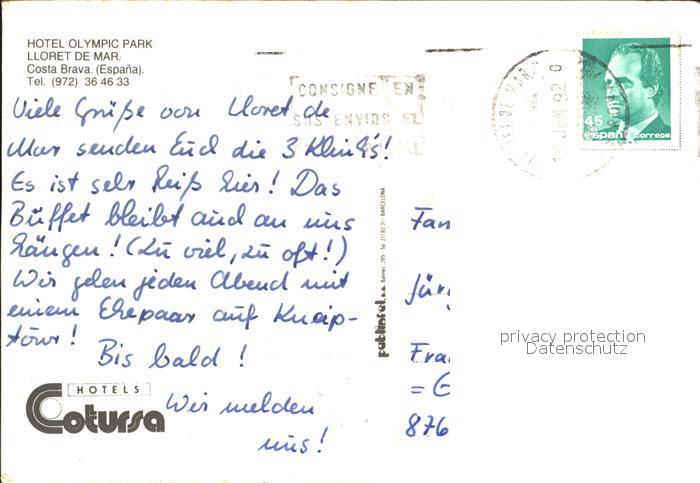 HOTEL OLYMPIC PARK
LLORET DE MAR.
Costa Brava. (España).
Tel. (972) 36 46 33
Viele Grüße von Lloret de
Mar senden Euch die 3
Es ist sehr heiß hier! Das
Büffet bleibt auch an uns
hängen! (zu viel, zu oft!)
Wir gehen jeden Abend mit
einem Ehepaar auf Kneip-
tour!
Bis bald!
Wir melden
uns!
HOTELS
Cotursa
CONSIGNE EN
SUS ENVIOS EL
POSTAL
JUN 92
45
españa correos
publintel, s.a.
BARCELONA
Fam
Jürg
Fra
= G
876
privacy protection
Datenschutz